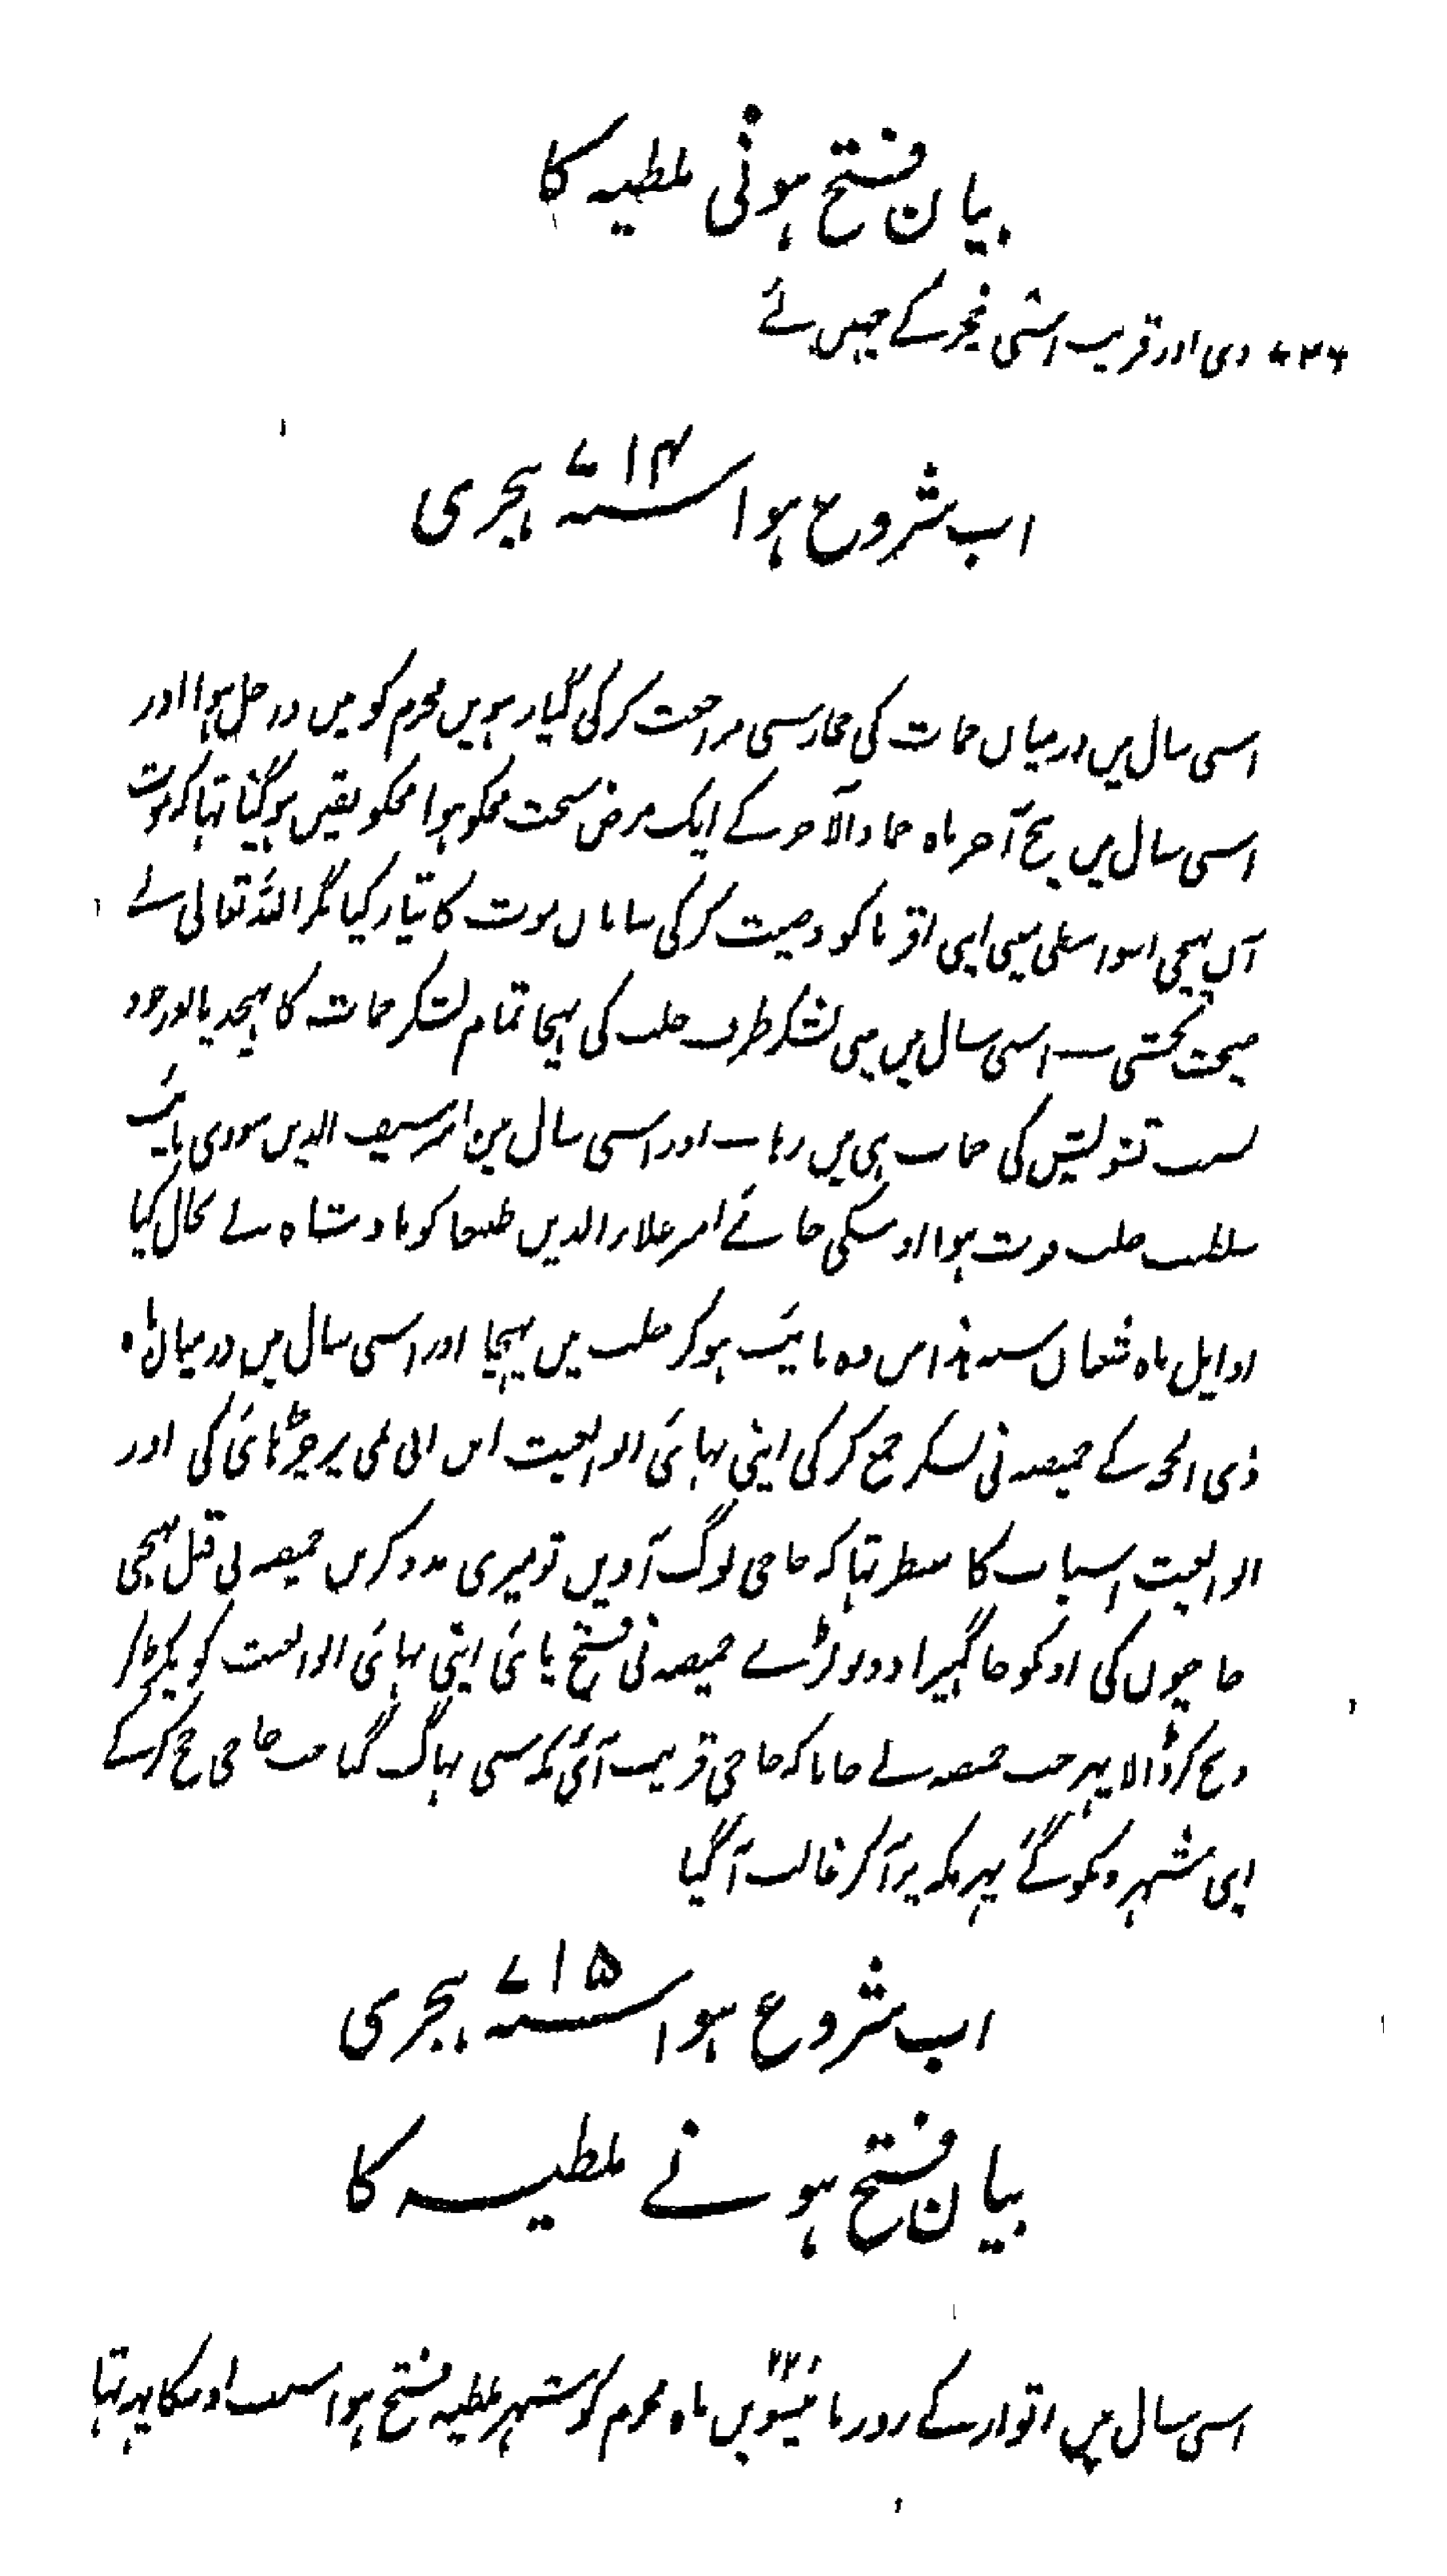 بیان فتح ہونی ملطیہ کا
۷۳۶ دی اور قریب اسّی خچر کے جہیں لئے
اب شروع ہوا سنہ ۷۱۴ ہجری
اسی سال میں درمیاں حمات کی حجاز سی مراجعت کر کی گیارہویں محرم کو میں داخل ہوا اور
اسی سال میں بیچ آخر ماہ جماد الآخر کے ایک مرض سخت مجکو ہوا مجکو یقیں ہو گیا تہا کہ موت
آں پہچی اسواسطی میی اپی اقربا کو وصیت کر کی ساماں موت کا تیار کیا مگر اللہ تعالی نے
صحت بخشی ــ اسی سال میں میی لشکر طرف حلب کی بہیجا تمام لشکر حمات کا بہیجدیا اور خود
بسبب تشویش کی حمات ہی میں رہا ــ اور اسی سال میں امیر سیف الدیں سودی نایب
سلطنت حلب فوت ہوا اوسکی جائے امیر علاء الدیں طنبغا کو بادشاہ نے بحال کیا
اوایل ماہ شعباں سنہ ہذا میں وہ نایب ہو کر حلب میں پہنچا اور اسی سال میں درمیاں ماہ
ذی الحجہ کے حمیصہ نی لشکر جمع کر کی اپنی بہائی ابو الغیث اں ابی نمی پر چڑہائی کی اور
ابو الغیث اسبات کا منتظر تہا کہ حاجی لوگ آویں تو میری مدد کریں حمیصہ نی قبل پہنچی
حاجیوں کی اوسکو جا گہیرا دونو لڑے حمیصہ نی فتح پائی اپنی بہائی ابو الغیث کو پکڑ کر
ذبح کر ڈالا پہر جب حمیصہ نے جانا کہ حاجی قریب آئی مکہ سی بہاگ گیا جب حاجی حج کر کے
اپی شہرونکو گئے پہر مکہ پر آ کر غالب آ گیا
اب شروع ہوا سنہ ۷۱۵ ہجری
بیان فتح ہونے ملطیہ کا
اسی سال میں اتوار کے روز بائیسویں ۲۲ ماہ محرم کو شہر ملطیہ فتح ہوا سبب اوسکا یہ تہا